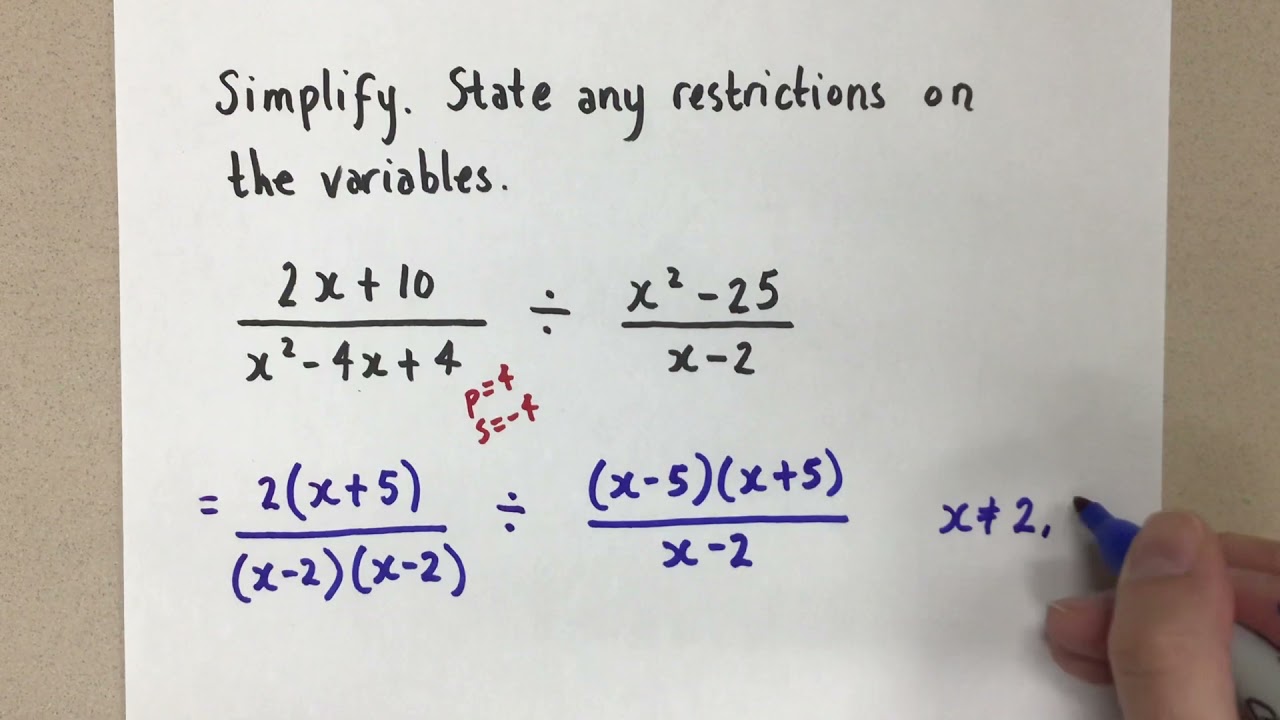 Simplify. State any restrictions on
the variables.
2x+10 ÷ x²-25
x²-4x+4 x-2
p=4
s=-4
= 2(x+5) ÷ (x-5)(x+5) x≠2,
(x-2)(x-2) x-2